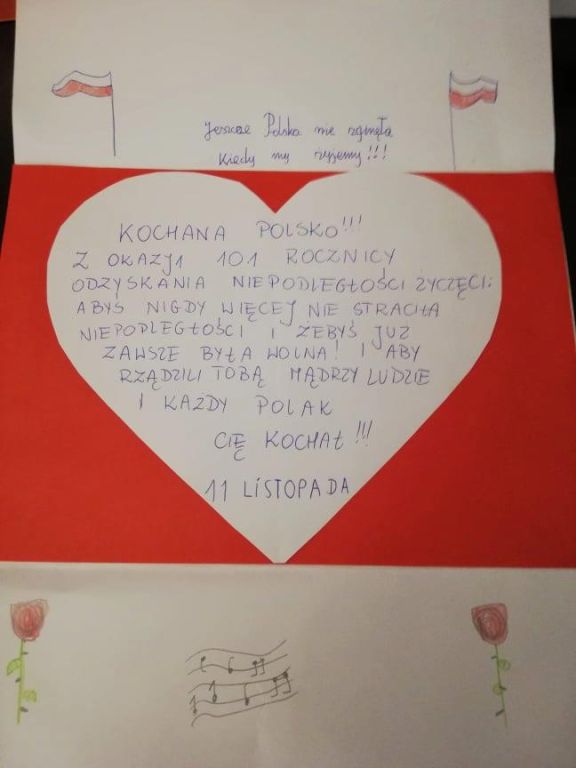 Jeszcze Polska nie zginęła
Kiedy my żyjemy!!!
KOCHANA POLSKO!!!
Z OKAZJI 101 ROCZNICY
ODZYSKANIA NIEPODLEGŁOŚCI ŻYCZĘCI:
ABYŚ NIGDY WIĘCEJ NIE STRACIŁA
NIEPODLEGŁOŚCI I ŻEBYŚ JUŻ
ZAWSZE BYŁA WOLNA! I ABY
RZĄDZILI TOBĄ MĄDRZY LUDZIE
I KAŻDY POLAK
CIĘ KOCHAŁ!!!
11 LISTOPADA